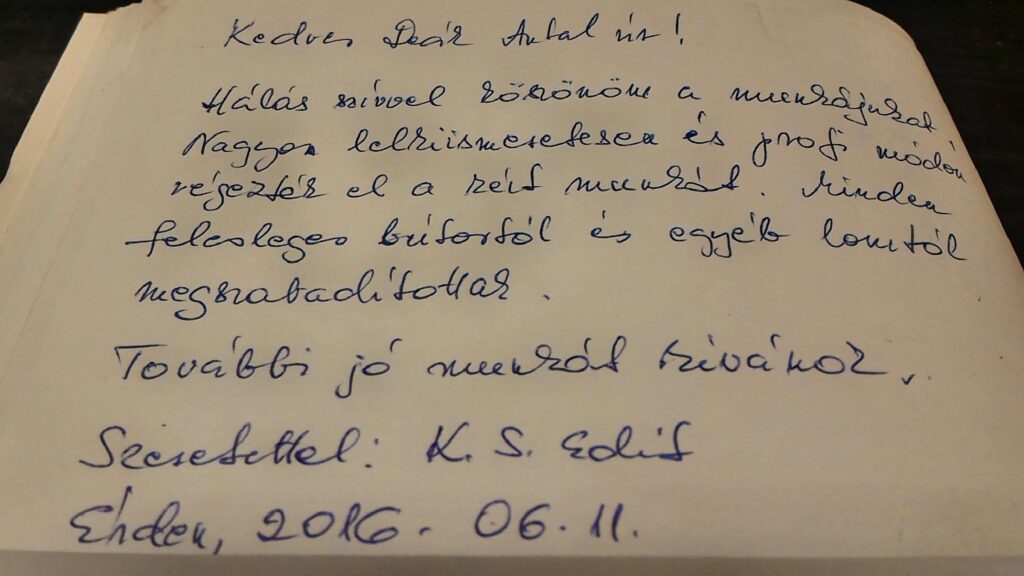 Kedves Deák Antal úr!
Hálás szívvel köszönöm a munkájukat
Nagyon lelkiismeretesen és profi módon
végezték el a kért munkát. Minden
felesleges bútortól és egyéb lomtól
megszabadítottak.
További jó munkát kívánok.
Szeretettel: K. S. Edit
Érden, 2016. 06. 11.